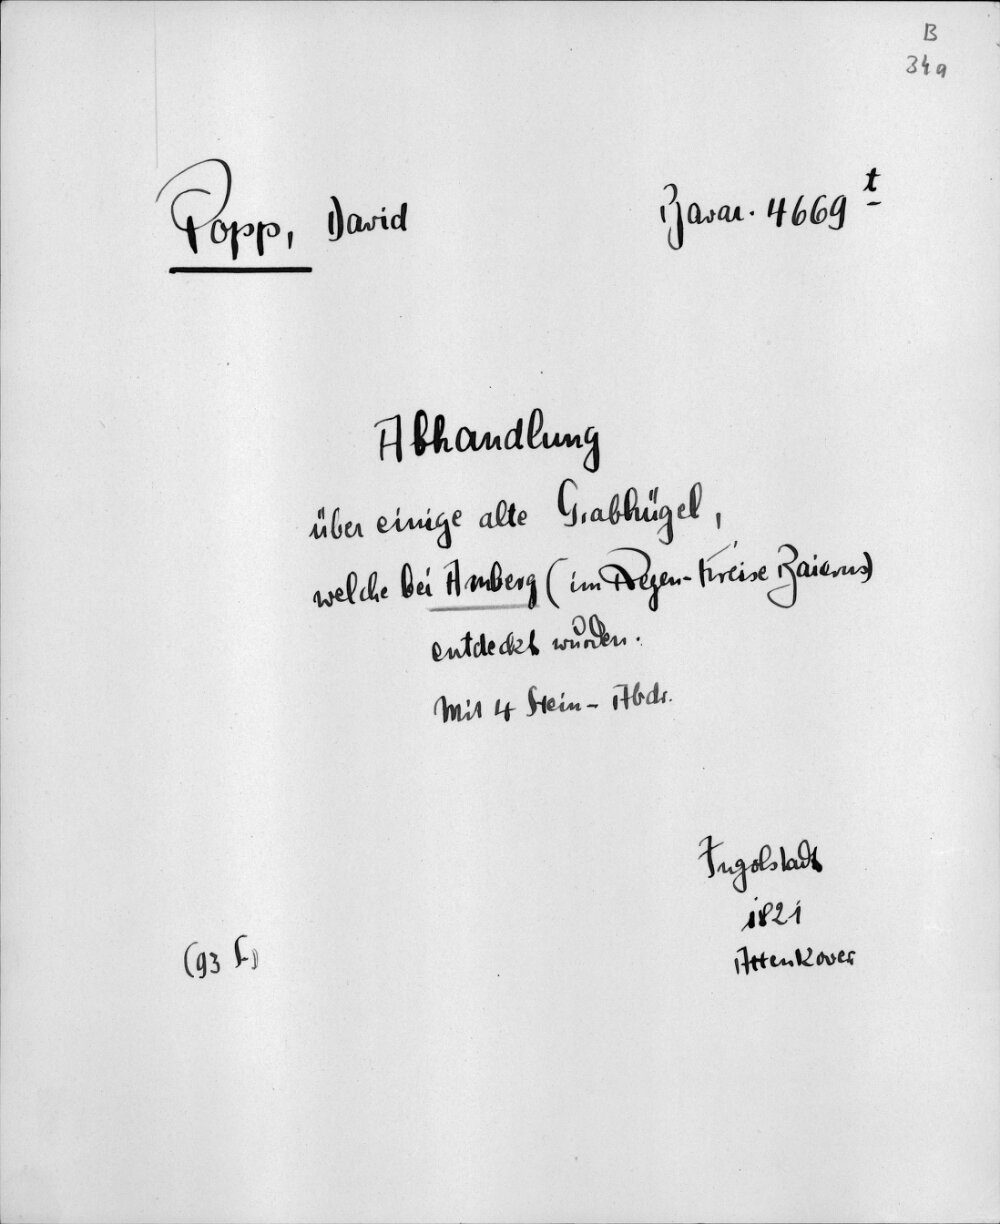 B
34a
Popp, David
Bavar. 4669 t
Abhandlung
über einige alte Grabhügel,
welche bei Amberg (im Regen-Kreise Baierns)
entdeckt wurden.
Mit 4 Stein-Abdr.
Ingolstadt
1821
Attenkover
(93 S.)